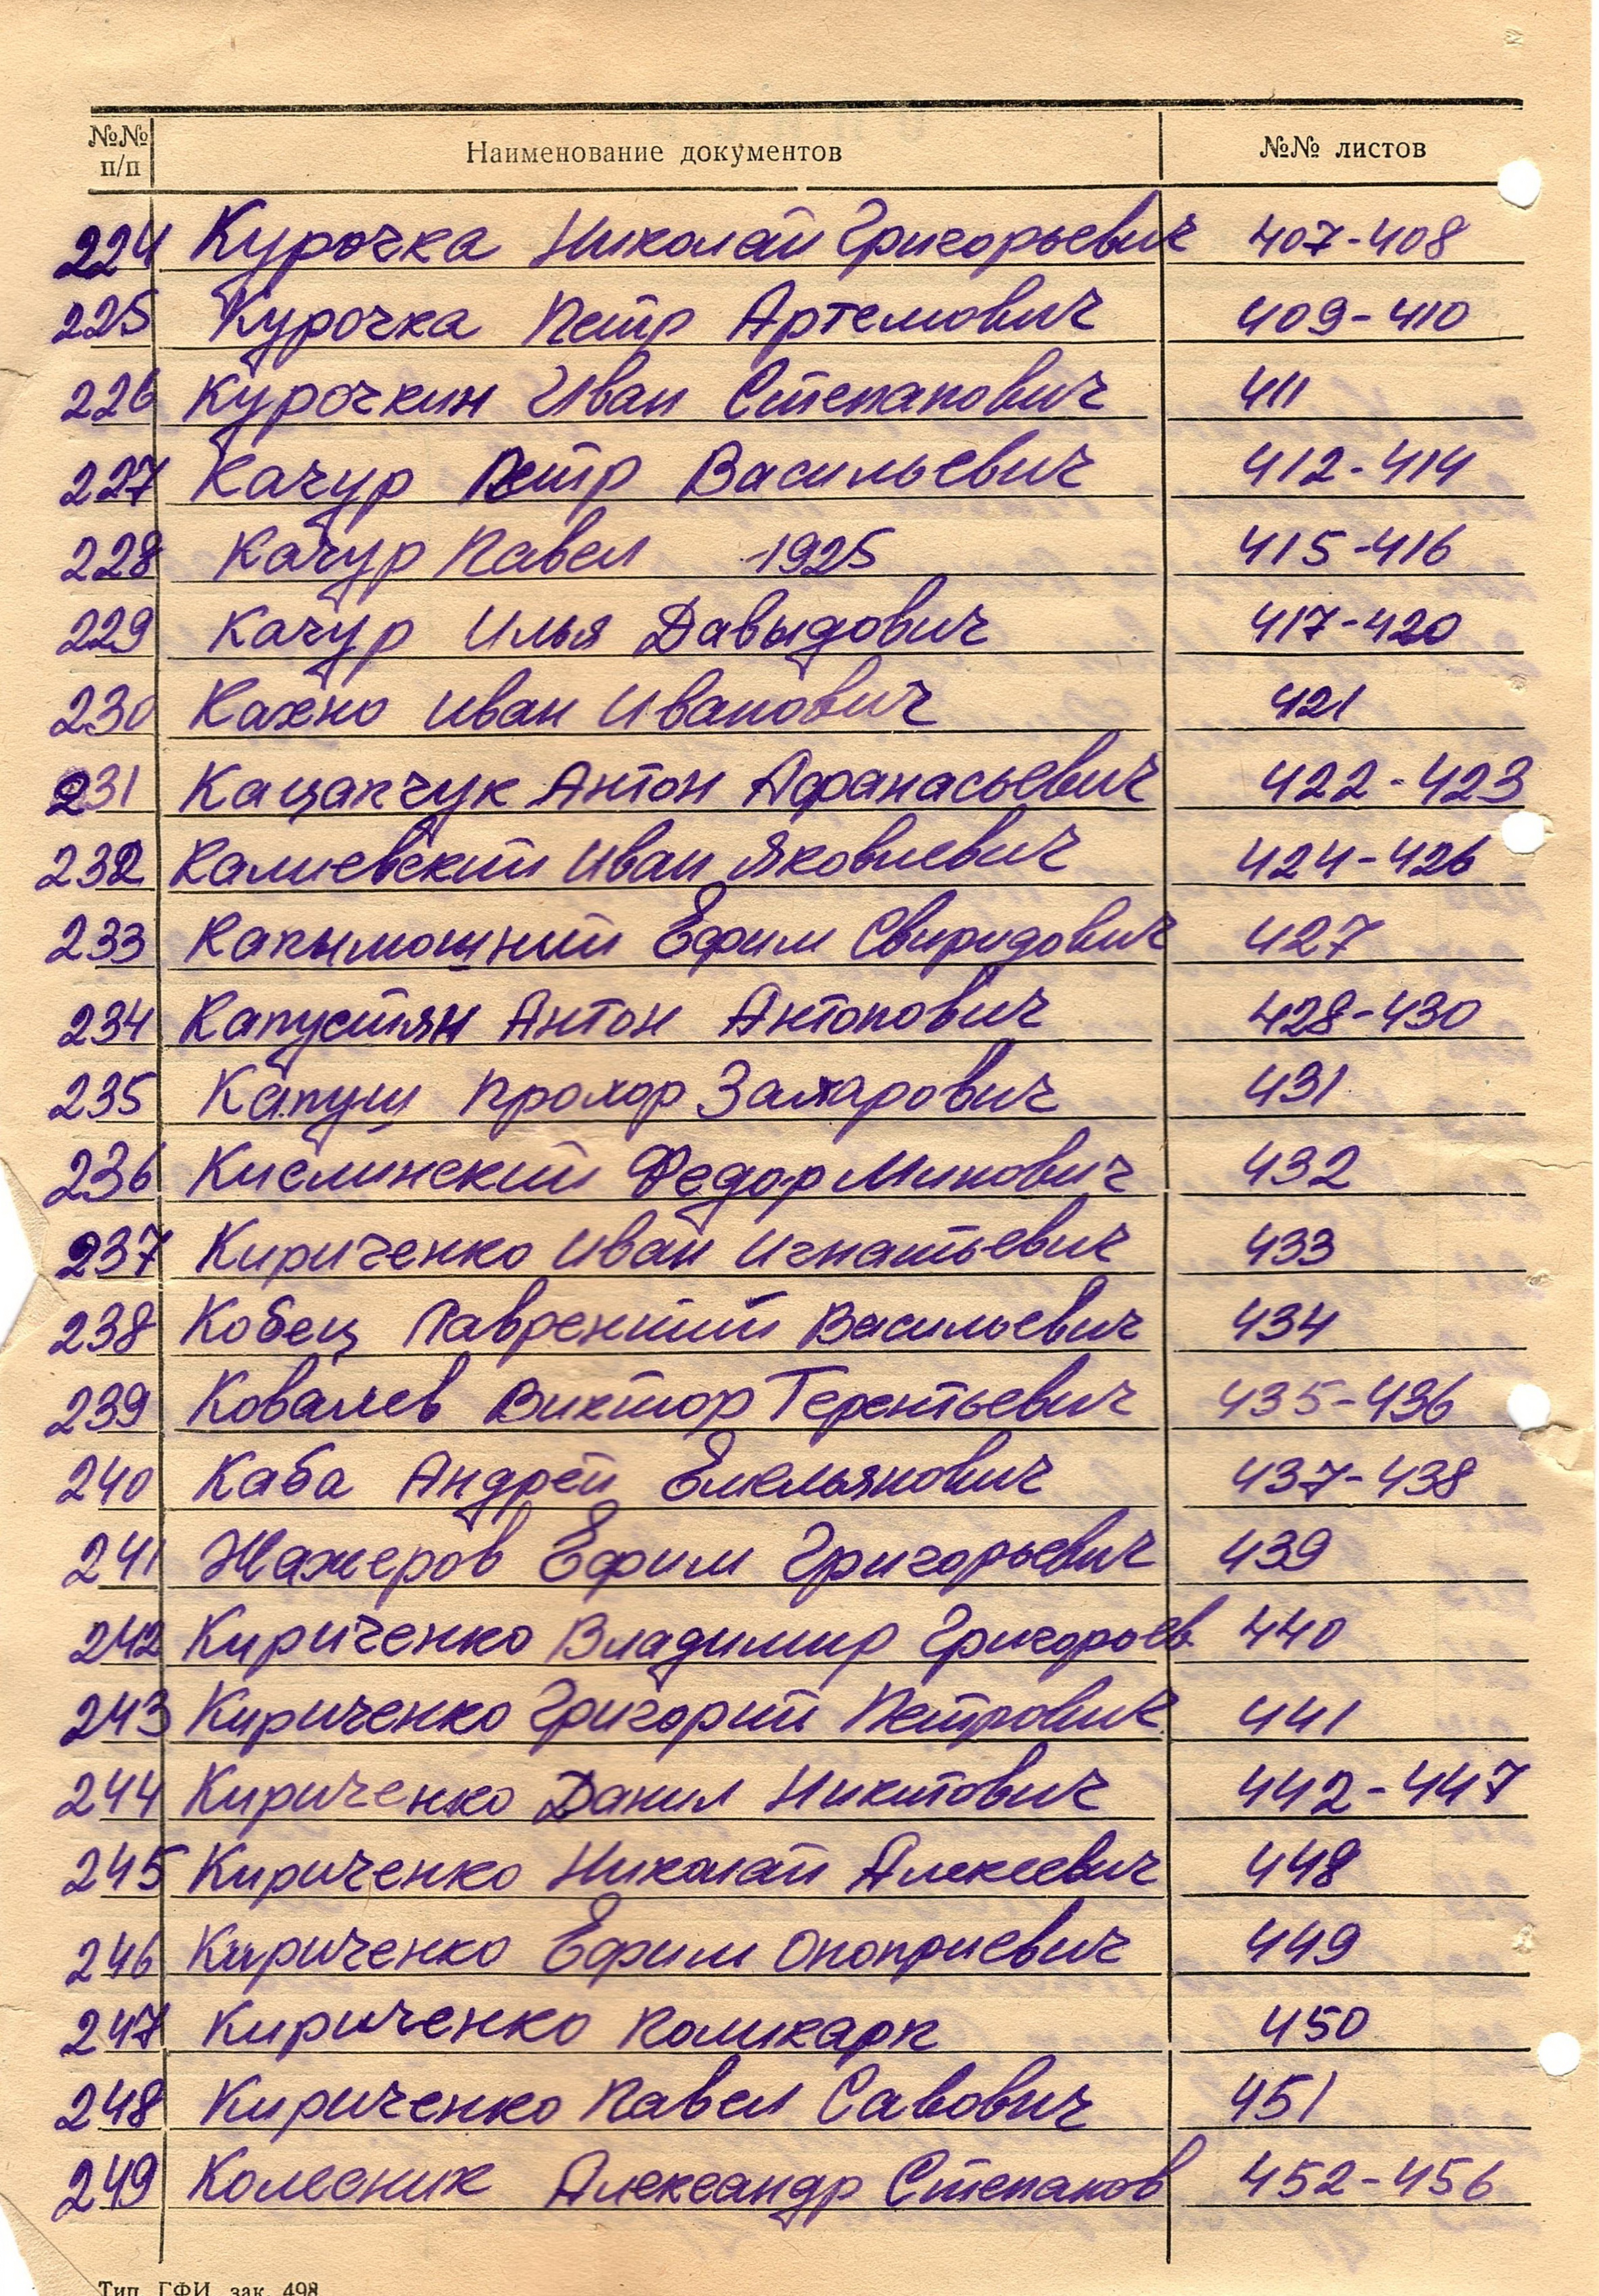 №№ п/п Наименование документов №№ листов
224 Курочка Николай Григорьевич 407-408
225 Курочка Петр Артемович 409-410
226 Курочкин Иван Степанович 411
227 Качур Петр Васильевич 412-414
228 Качур Павел 1925 415-416
229 Качур Илья Давыдович 417-420
230 Кахно Иван Иванович 421
231 Кацапчук Антон Афанасьевич 422-423
232 Калиевский Иван Яковлевич 424-426
233 Капымошний Ефим Свиридович 427
234 Капустян Антон Антонович 428-430
235 Капуш Прохор Захарович 431
236 Кислинский Федор Минович 432
237 Кириченко Иван Игнатьевич 433
238 Кобец Лаврентий Васильевич 434
239 Ковалев Виктор Терентьевич 435-436
240 Каба Андрей Емельянович 437-438
241 Жажеров Ефим Григорьевич 439
242 Кириченко Владимир Григорьев. 440
243 Кириченко Григорий Петрович 441
244 Кириченко Данил Никитович 442-447
245 Кириченко Николай Алексеевич 448
246 Кириченко Ефим Оноприевич 449
247 Кириченко Поликарп 450
248 Кириченко Павел Савович 451
249 Колесник Александр Степанов 452-456
Тип. ГФИ, зак. 498